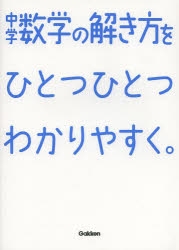 中学数学の解き方を
ひとつひとつ
わかりやすく。
Gakken